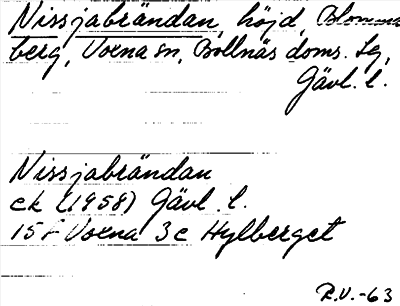 Nissjabrändan, höjd, Blomma
berg, Voxna sn, Bollnäs doms. Sg,
Gävl. l.
Nissjabrändan
ek (1958) Gävl. l.
15 F Voxna 3c Hylberget
R.V.-63